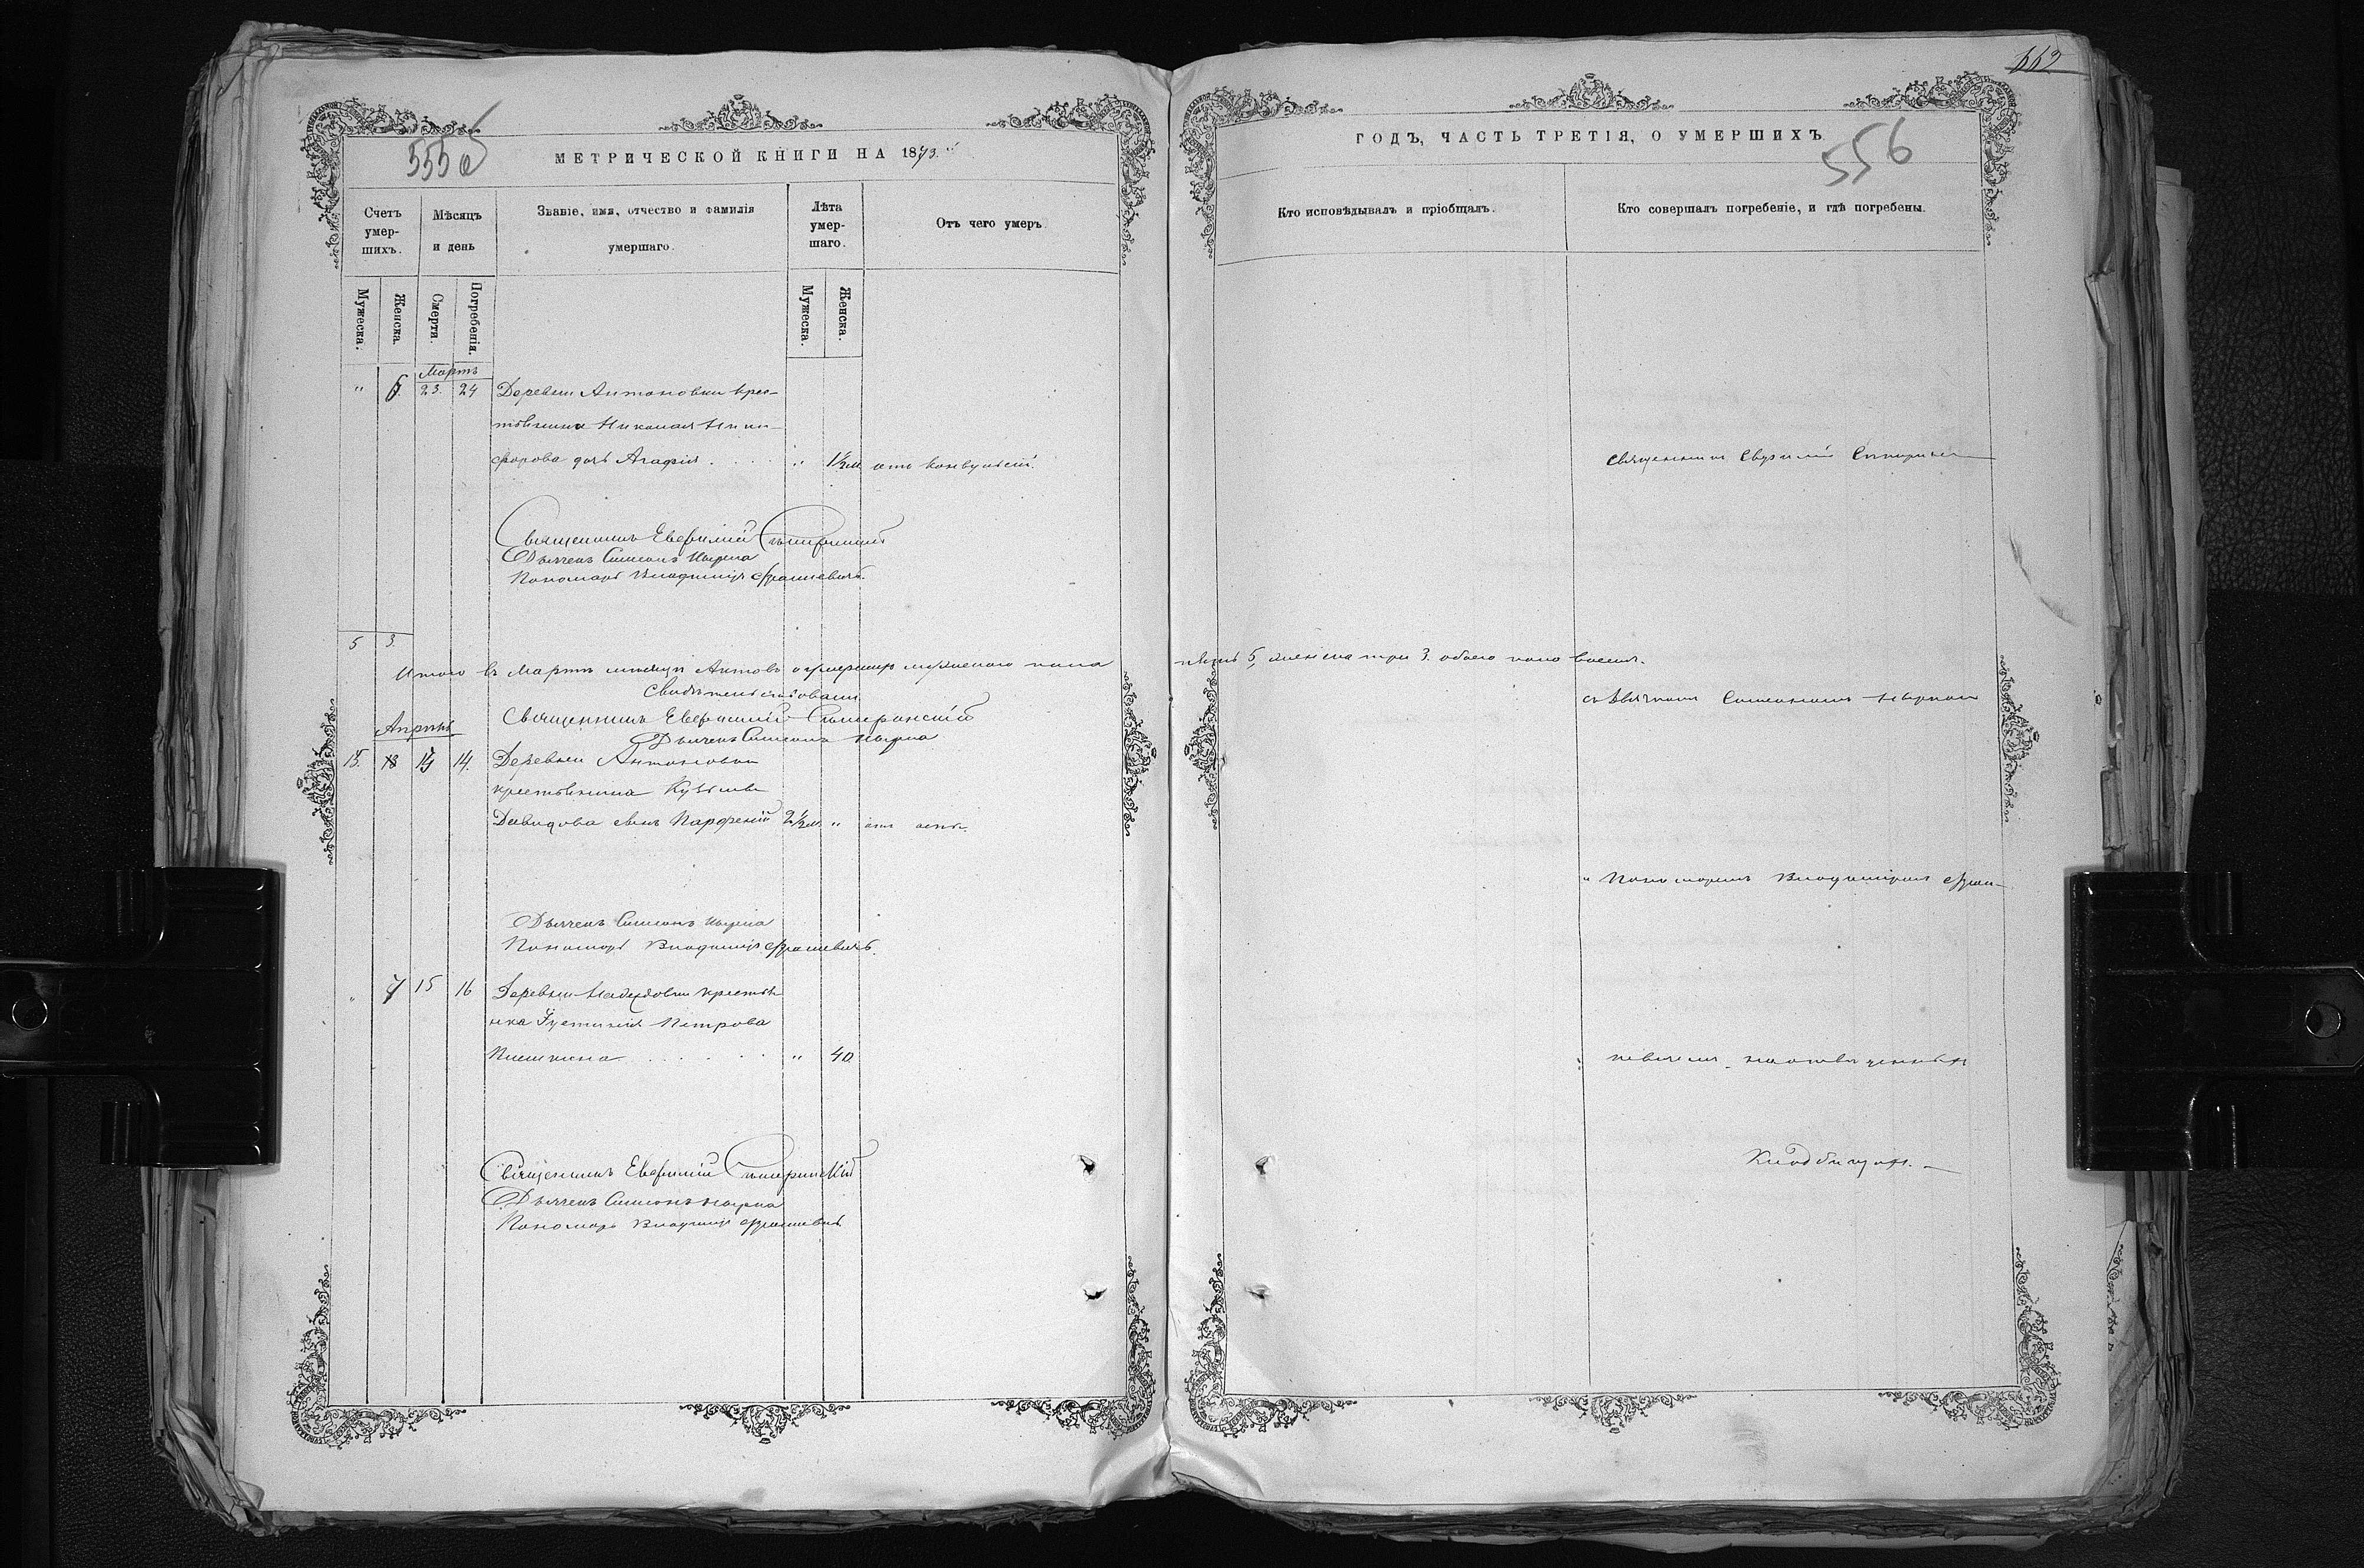 МЕТРИЧЕСКОЙ КНИГИ НА 1873
Счетъ умершихъ.
Мѣсяцъ и день
Званіе, имя, отчество и фамилія умершаго.
Лѣта умершаго.
Отъ чего умеръ
Мужеска.
Женска.
Смерти.
Погребенія.
Мужеска.
Женска.
Мартъ
" 6. 23. 24 Деревни Антоновки крес-
тьянина Николая Ники-
форова дочь Агафія " 1½м. отъ конвульсій.
Священникъ Евфимій
Дьячекъ Симеонъ
Пономарь Владиміръ
5 3.
Итого въ Мартѣ мѣсяцѣ Актовъ о умершихъ мужескаго пола
Свидѣтельствовали
Священникъ Евфимій
Дьячекъ Симеонъ
Апрѣль
15. 13 14. Деревни Антоновки
крестьянина Кузьмы
Давидова сынъ Парфеній 2½м. " отъ оспы.
Дьячекъ Симеонъ
Пономарь Владиміръ
" 7 15 16 Деревни крестья-
нка Устинія Петрова
" 40
Священникъ Евфимій
Дьячекъ Симеонъ
Пономарь Владиміръ
662
ГОДЪ, ЧАСТЬ ТРЕТІЯ, О УМЕРШИХЪ
556
Кто исповѣдывалъ и пріобщалъ.
Кто совершалъ погребеніе, и гдѣ погребены.
Священникъ Евфимій
пять 5, женска три 3. обоего пола восемь.
съ Дьячкомъ Симеономъ
и Пономаремъ Владиміромъ
Кладбищѣ.